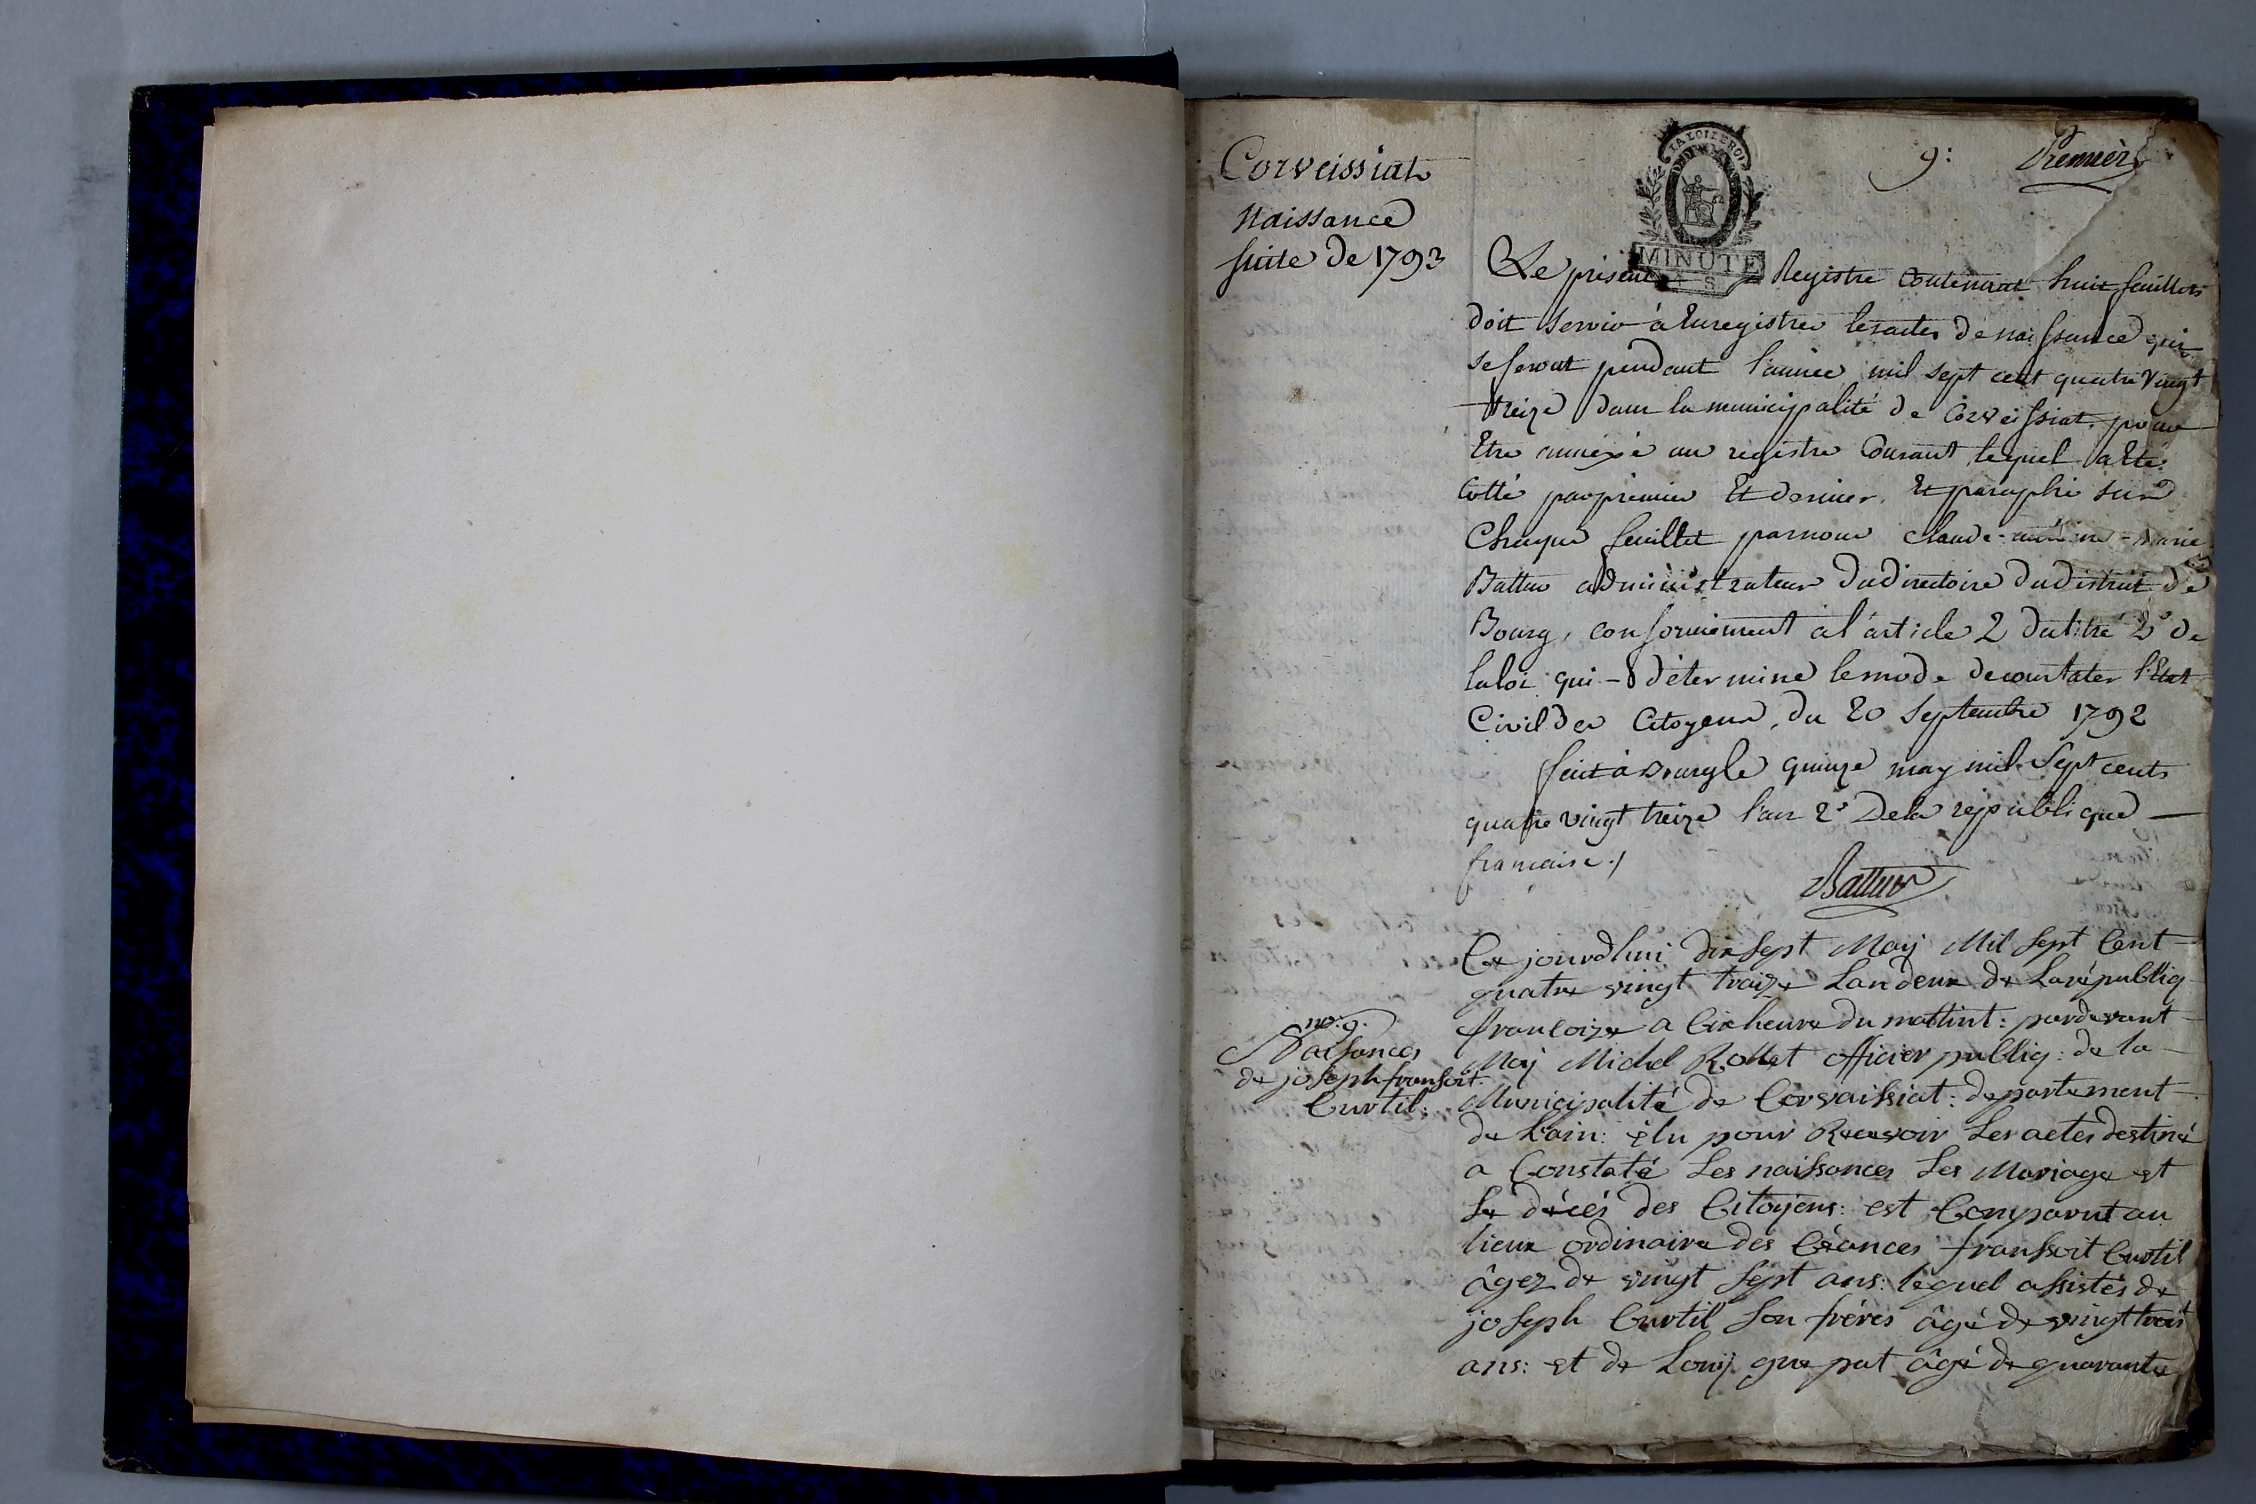 Corveissiat
Naissance
suite de 1793
LA LOI LE ROI
MINUTE
4 S
9:
Premier
Le présent Registre contenant huit feuillets
doit servir à Enregistrer les actes de naissance qui
se feront pendant l'année mil sept cent quatre vingt
treize dans la municipalité de Corveissiat, pour
Etre annéxé au registre Courant, lequel a Eté
Cotté par premier Et dernier, Et paraphé sur
Chaque feuillet par nous Claude - - marie
Battur administrateur du directoire du district de
Bourg, conformément a l'article 2 du titre 2e de
la loi qui - détermine le mode de constater l'Etat
Civil des Citoyens, du 20 Septembre 1792
fait à Bourg le quinze may mil Sept cents
quatre vingt treize l'an 2e De la république
francaise ./
Battur
Ce jourdhui dix sept May Mil sept Cent
quatre vingt traize Lan deux de La républiq
francoize a Cix heure du mattint: par devant
Moy Michel Rollet officier publiq: de la
Municipalité de Corvaissiat: departement
de L'ain: élu pour Recevoir Les actes destiné
a Constaté Les naissances Les Mariage et
Le décés des Citoyens: est Comparut au
lieux ordinaire des Céances franssoit Curtil
âgez de vingt Sept ans: lequel assistés de
joseph Curtil son fréres âgé de vingt trois
ans: et de Louy que pat âgé de quarante
no: 9.
Naissances
de joseph franssoit
Curtil: